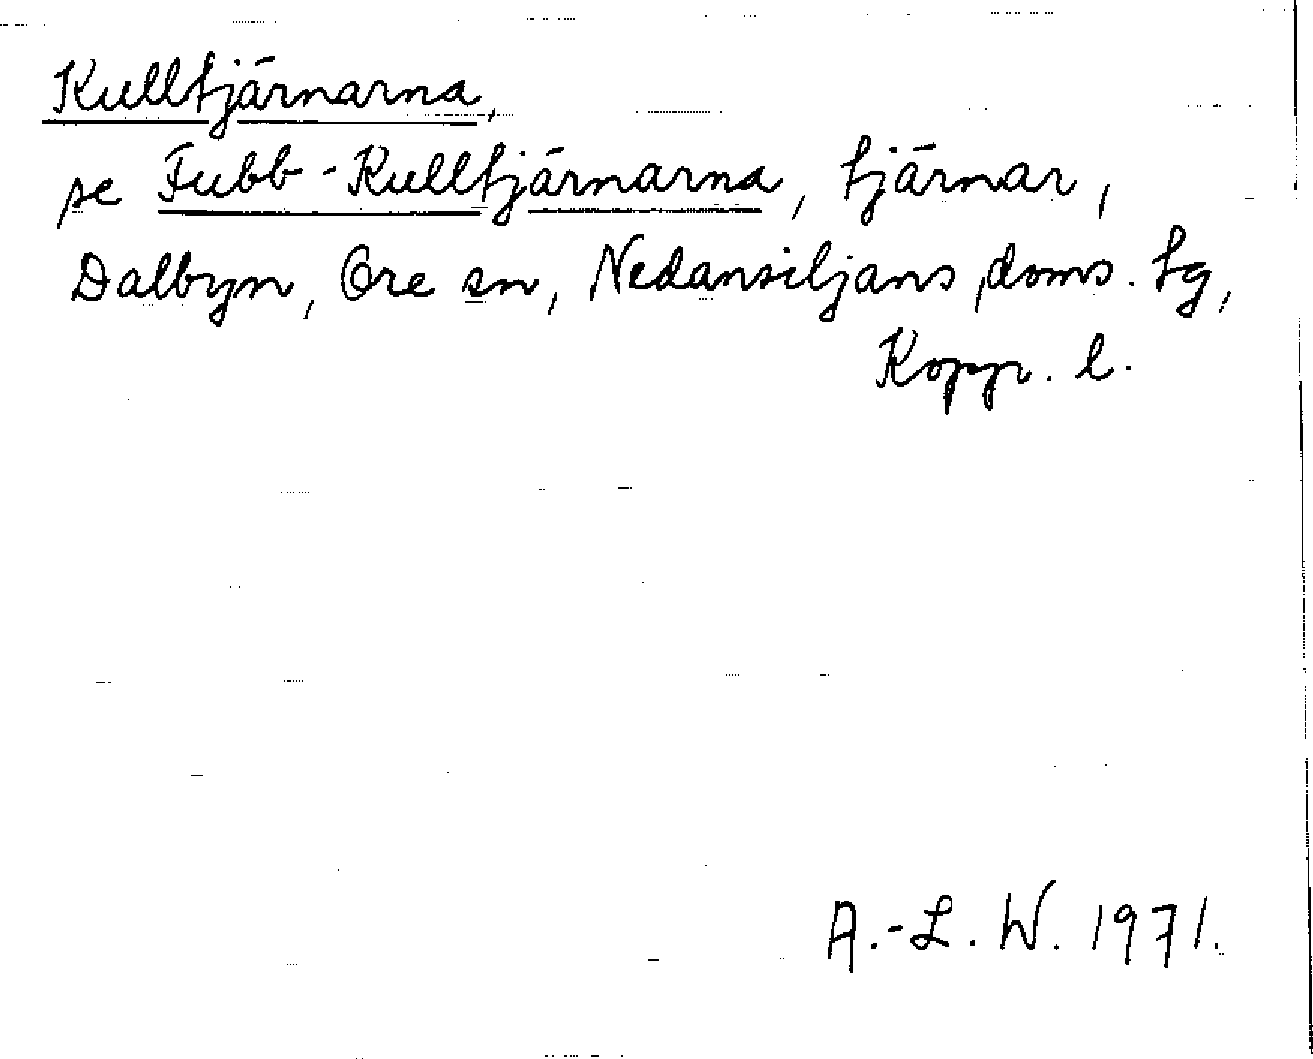 Kulltjärnarna,
se Fubb-Kulltjärnarna, tjärnar,
Dalbyn, Ore sn, Nedansiljans doms. tg,
Kopp. l.
A.-L. W. 1971.